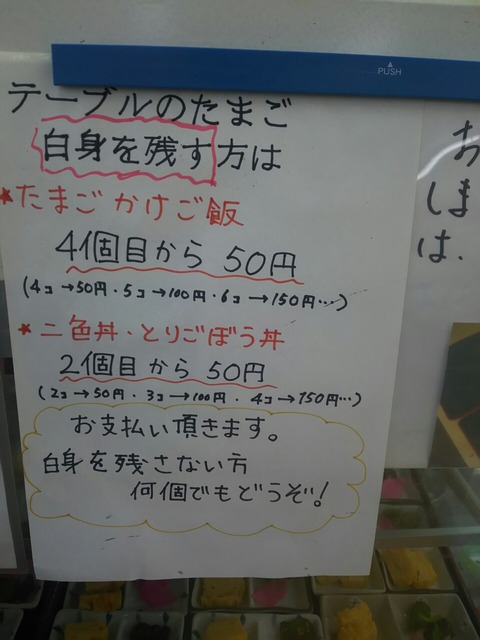 PUSH
テーブルのたまご
白身を残す方は
★たまごかけご飯
4個目から 50円
(4コ→50円・5コ→100円・6コ→150円…)
★二色丼・とりごぼう丼
2個目から 50円
(2コ→50円・3コ→100円・4コ→150円…)
お支払い頂きます。
白身を残さない方
何個でもどうぞ!
お
しま
は、